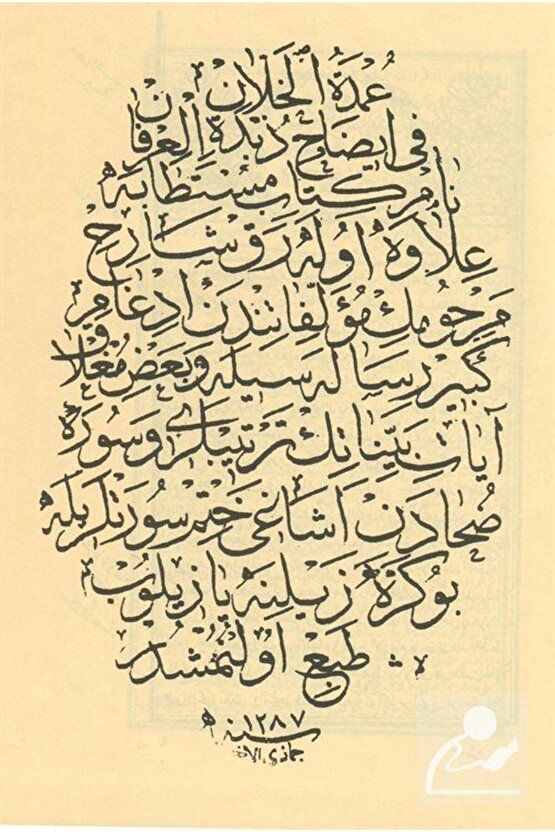 عُمْدَةُ الْخُلَّانِ
فِى ايضَاحِ زُبْدَةِ الْعِرْفَانِ
نَامْ كِتَابِ مُسْتَطَابَه
عِلَاوَهْ اُولَهرَقْ شَارِحِ
مَرْحُومِكْ مُؤَلَّفَاتِندَنْ اِدْغَامِ
كَبِيرْ رِسَالَه سِيلَه وَبَعْضِ مُغْلَاقِ
آيَاتِ بَيِّنَاتِكْ تَرْتِيبْلَرِى وَسُورَهٔ
ضُحَادَنْ اَشَاغِى خَتِمْ سُورَتْلَرِيلَه
بُوكَرَّهْ زَيْلِنَه يَازِيلُوبْ
طَبْعْ اُولُنْمُشْدُرْ
سنه ١٢٨٧
جماذى